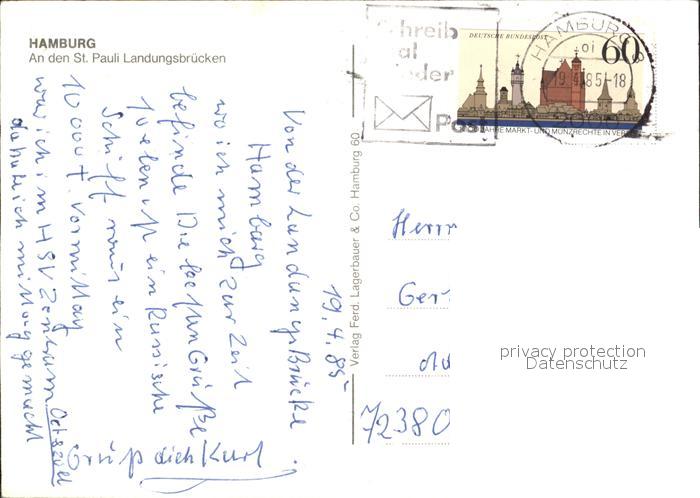 HAMBURG
An den St. Pauli Landungsbrücken
19.4.85
Von der Landungsbrücke
Hamburg
wo ich mich zur Zeit
befinde Die besten Grüße
Soeben ist ein Russische
Schiff mit ein
10 000 t. Vormittag
war ich im HSV Zentrum
da habe ich mittag gemacht
Grüß dich Kurt
Verlag Ferd. Lagerbauer & Co. Hamburg 60
Schreib
mal
wieder
Post
DEUTSCHE BUNDESPOST
60
JAHRE MARKT- UND MÜNZRECHTE IN VER
HAMBURG
19.4.85-18
Herrn
Ger
72380
privacy protection
Datenschutz